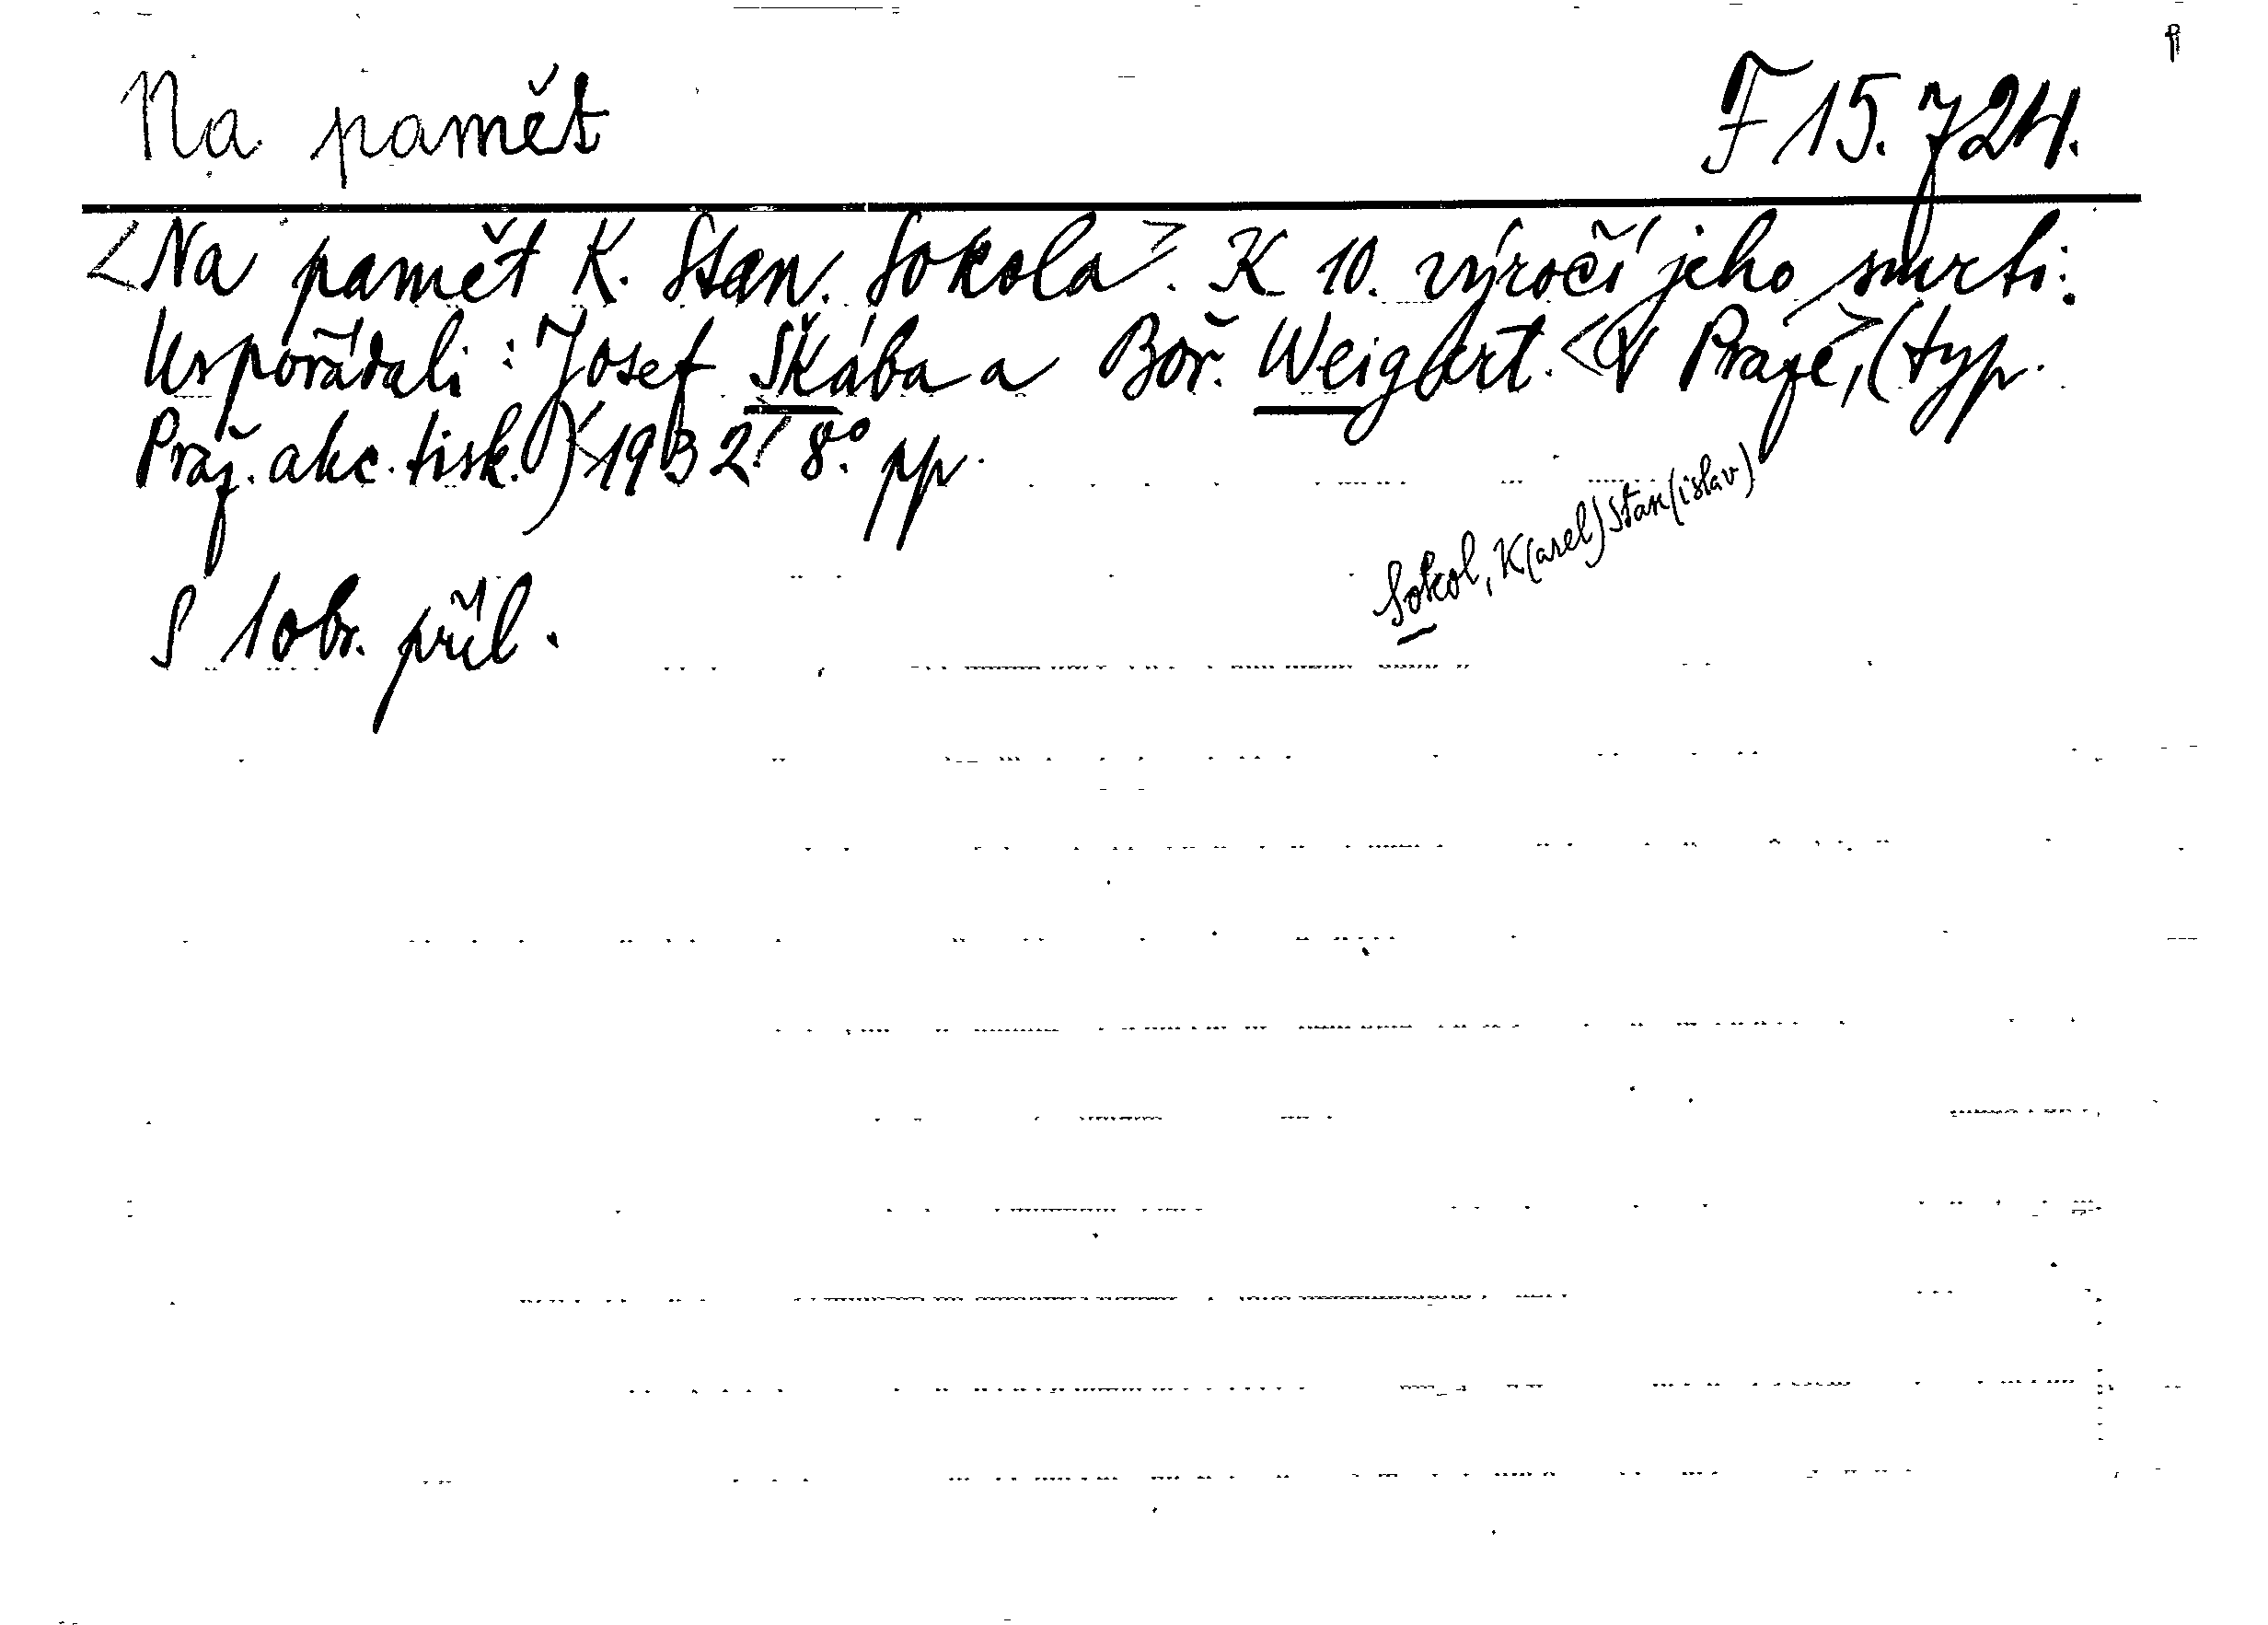 Na pamět F 15.724.
<Na pamět K. Stan. Sokola>. K 10. výročí jeho smrti.
Uspořádali: Josef Škába a Boř. Weigert. <V Praze>, (typ.
Praž. akc. tisk.) <1932.> 8.° pp.
Sokol, K(arel) Stan(islav)
S 1 obr. příl.